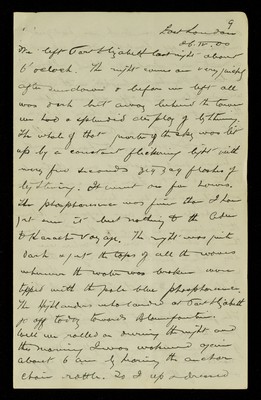 9
East London
26. IV. 00
We left Port Elizabeth last night about
6 o'clock. The night came on very quickly
after sundown & before we left all
was dark but away behind the town
we had a splendid display of lightning.
The whole of that quarter of the sky was lit
up by a constant flickering light with
every few seconds zig zag flashes of
lightning. It went on for hours.
The phosphorescence was finer than I have
yet seen it but nothing to the Aden
to Karachi voyage. The night was quite
dark & just the tops of all the waves
wherever the water was broken were
tipped with the pale blue phosphorescence.
The Highlanders who landed at Port Elizabeth
go off today towards Bloemfontein.
Well we rolled on during the night and
this morning I was wakened again
about 6 am by hearing the anchor
chain rattle. So I up & dressed